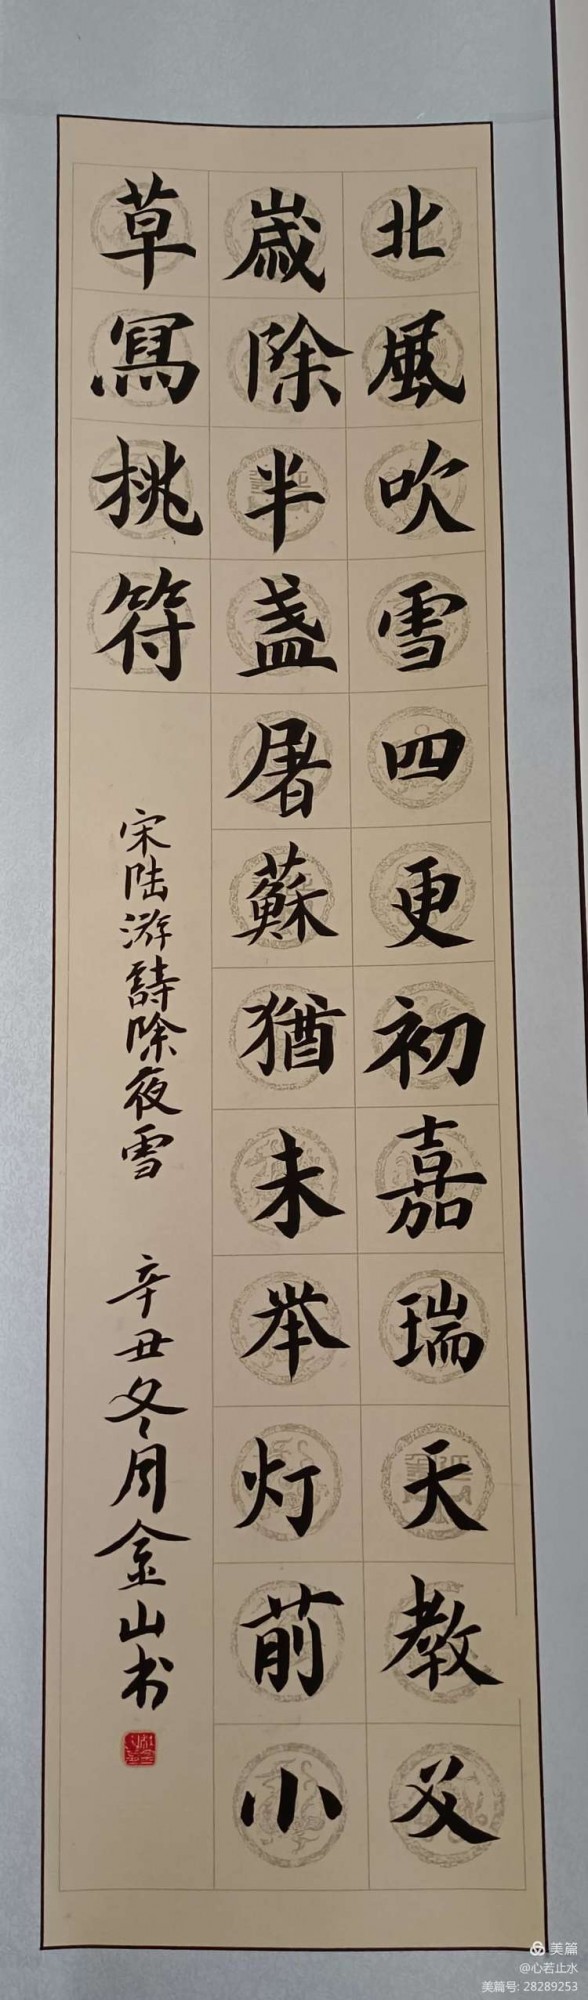 北風吹雪四更初嘉瑞天教及
歲除半盞屠蘇猶未举灯前小
草寫桃符
宋陆游詩除夜雪
辛丑冬月金山书
美篇
@心若止水
美篇号: 28289253